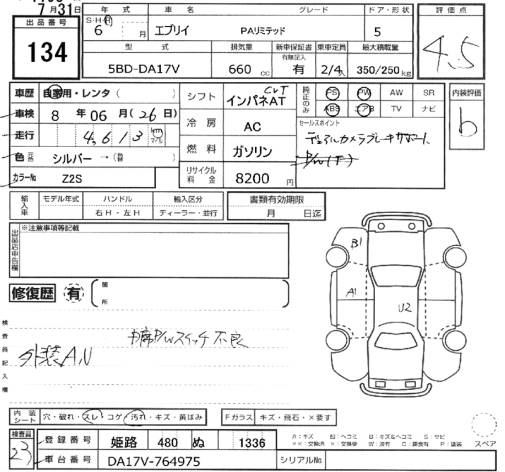 7月31日
出品番号
134
年式
車名
グレード
ドア・形状
評価点
S・H・R
6
月
エブリイ
PAリミテッド
5
4.5
型式
排気量
新車保証書
有限記入
乗車定員
最大積載量
5BD-DA17V
660 cc
有
2/4人
350/250 kg
車歴
自家用・レンタ( )
シフト
CVT
インパネAT
純正のみ
PS
PW
AW
SR
内装評価
ABS
エアB
TV
ナビ
b
車検
8 年 06 月 (26 日)
冷房
AC
セールスポイント
デュアルカメラブレーキサポート
走行
4,613
km
色
シルバー→(替 )
燃料
ガソリン
カラーNo
Z2S
リサイクル料金
8200 円
輸入車
モデル年式
ハンドル
右H・左H
輸入区分
ディーラー・並行
書類有効期限
月 日迄
出品店申告欄
※注意事項等記載
修復歴
有
箇所
B1
A1
U2
検査員記入欄
外装A,U
力席P/Wスイッチ不良
内装シート
穴・破れ・スレ・コゲ・汚れ・キズ・黄ばみ
Fガラス
キズ・飛石・×要す
スペア
検査員
23
登録番号
姫路
480
ぬ
1336
車台番号
DA17V-764975
シリアルNo.